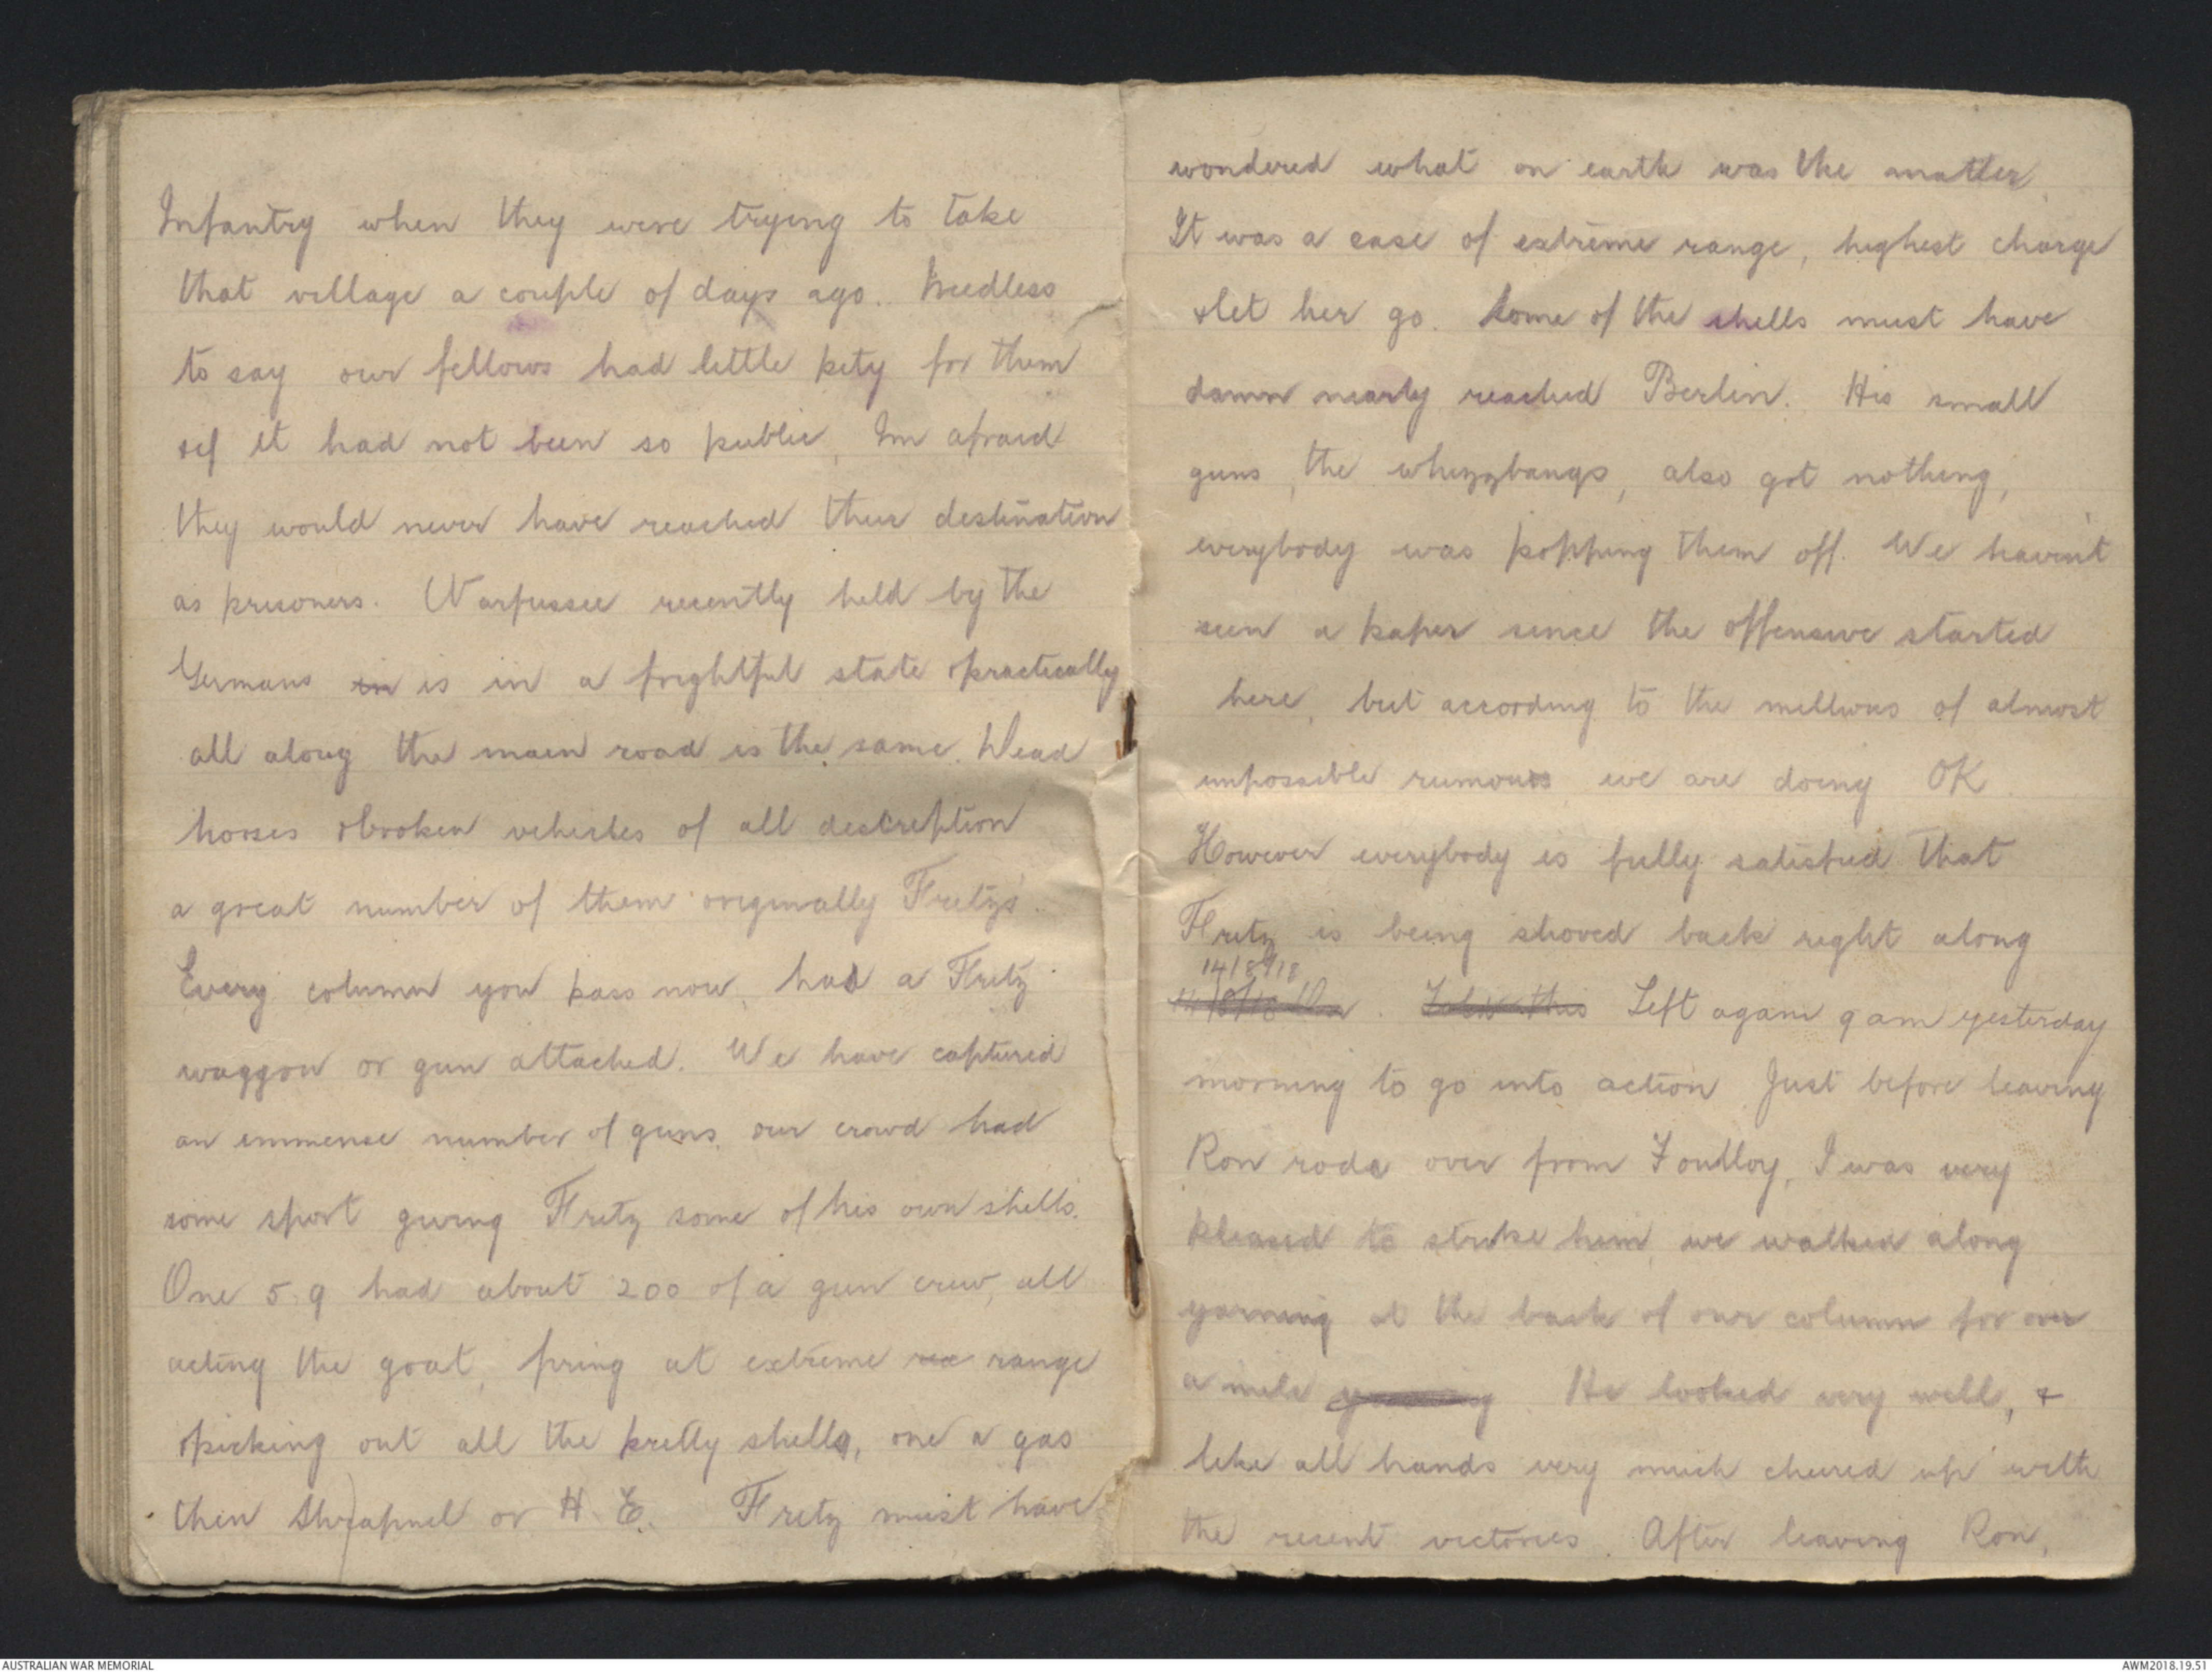 Infantry when they were trying to take
that village a couple of days ago. Needless
to say our fellows had little pity for them
&if it had not been so public, Im afraid
they would never have reached their destination
as prisoners. Warfusee recently held by the
Germans in is in a frightful state &practically
all along the main road is the same. Dead
horses &broken vehicles of all description
a great number of them originally Fritzs'.
Every column you pass now, has a Fritz
waggon or gun attached. We have captured
an immense number of guns. our crowd had
some sport giving Fritz some of his own shells.
One 5.9 had about 200 of a gun crew, all
acting the goat, firing at extreme range
&picking out all the pretty shells, one a gas
then Shrapnel or H.E. Fritz must have
wondered what on earth was the matter.
It was a case of extreme range, highest charge
&let her go. Some of the shells must have
damn nearly reached Berlin. His small
guns, the whizzbangs, also got nothing,
everybody was popping them off. We haven't
seen a paper since the offensive started
here, but according to the millions of almost
impossible rumours we are doing OK.
However everybody is fully satisfied that
Fritz is being shoved back right along
14/8/18
Left again 9 am yesterday
morning to go into action Just before leaving
Ron rode over from Fouilloy, I was very
pleased to strike him, we walked along
yarning at the back of our column for over
a mile. He looked very well, &
like all hands very much cheered up with
the recent victories. After leaving Ron,
AUSTRALIAN WAR MEMORIAL
AWM2018.19.51